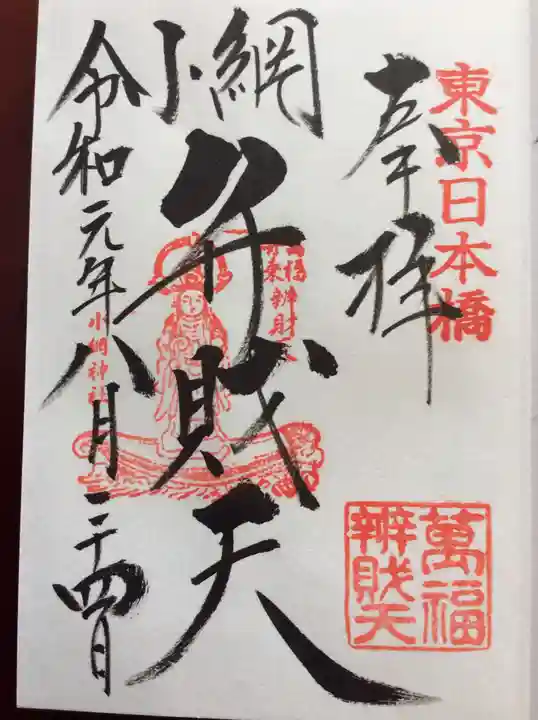 東京日本橋
奉拝
小網
弁賊天
萬福
辨賊天
小網神社
令和元年八月二十四日